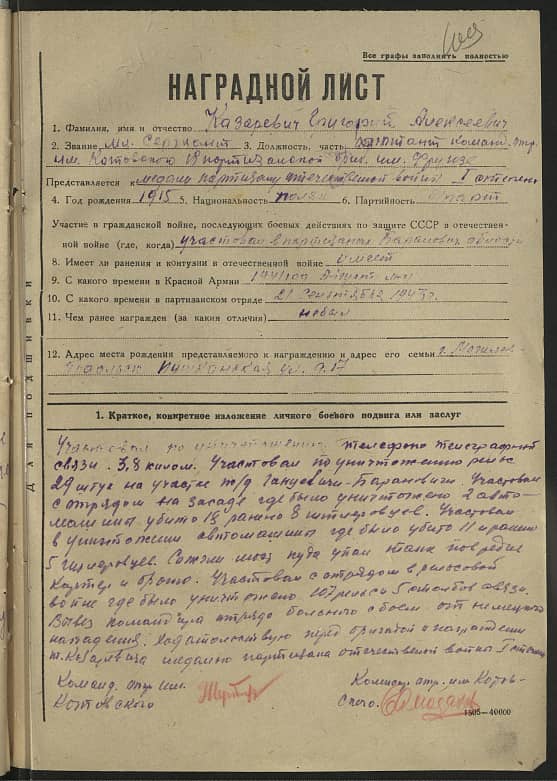 Все графы заполнить полностью
НАГРАДНОЙ ЛИСТ
1. Фамилия, имя и отчество Казаревич Григорий Алексеевич
2. Звание Мл. Сержант 3. Должность, часть команд. отр.
им. Котовского партизанской бриг. им. Фрунзе
Представляется медали партизану отечественной войны I степени
4. Год рождения 1915 5. Национальность поляк 6. Партийность
Участие в гражданской войне, последующих боевых действиях по защите СССР в отечествен-
ной войне (где, когда) участвовал в партизанах Баранович области
8. Имеет ли ранения и контузии в отечественной войне имеет
9. С какого времени в Красной Армии
10. С какого времени в партизанском отряде 21 Сентября 1943 г.
11. Чем ранее награжден (за какия отличия) небыл
12. Адрес места рождения представляемого к награждению и адрес его семьи г. Могилев-
Подольск Пушкинская ул. д. 17
1. Краткое, конкретное изложение личного боевого подвига или заслуг
Участвовал по уничтожению телефоно телеграфной
связи. 3,8 килом. Участвовал по уничтожению рельс
29 штук на участке ж/д Ганцевичи-Барановичи. Участвовал
с отрядом на засаде где было уничтожено 2 авто-
машины убито 18 ранено 8 гитлеровцев. Участвовал
в уничтожении автомашины где было убито 11 и ранено
5 гитлеровцев.
Картер и броню. Участвовал с отрядом в рельсовой
войне где было уничтожено рельс и 5 столбов связи.
Вывез командира отряда больного с боем от немецкого
нападения. Ходатайствую перед бригадой о награждении
т. Казаревича медалью партизана отечественной войны I степени
Команд. отр. им.
Котовского
Комиссар отр. им Котов-
ского.
1505—40000
ДЛЯ ПОДШИВКИ